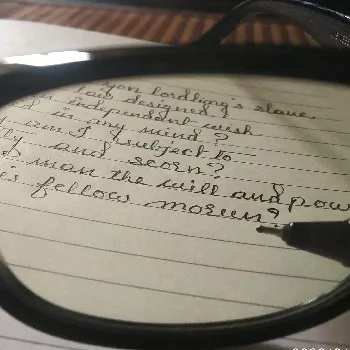 yon lordling's slave,
law designed,
independent wish
in any mind?
am I subject to
and scorn?
man the will and pow
fellow mourn?